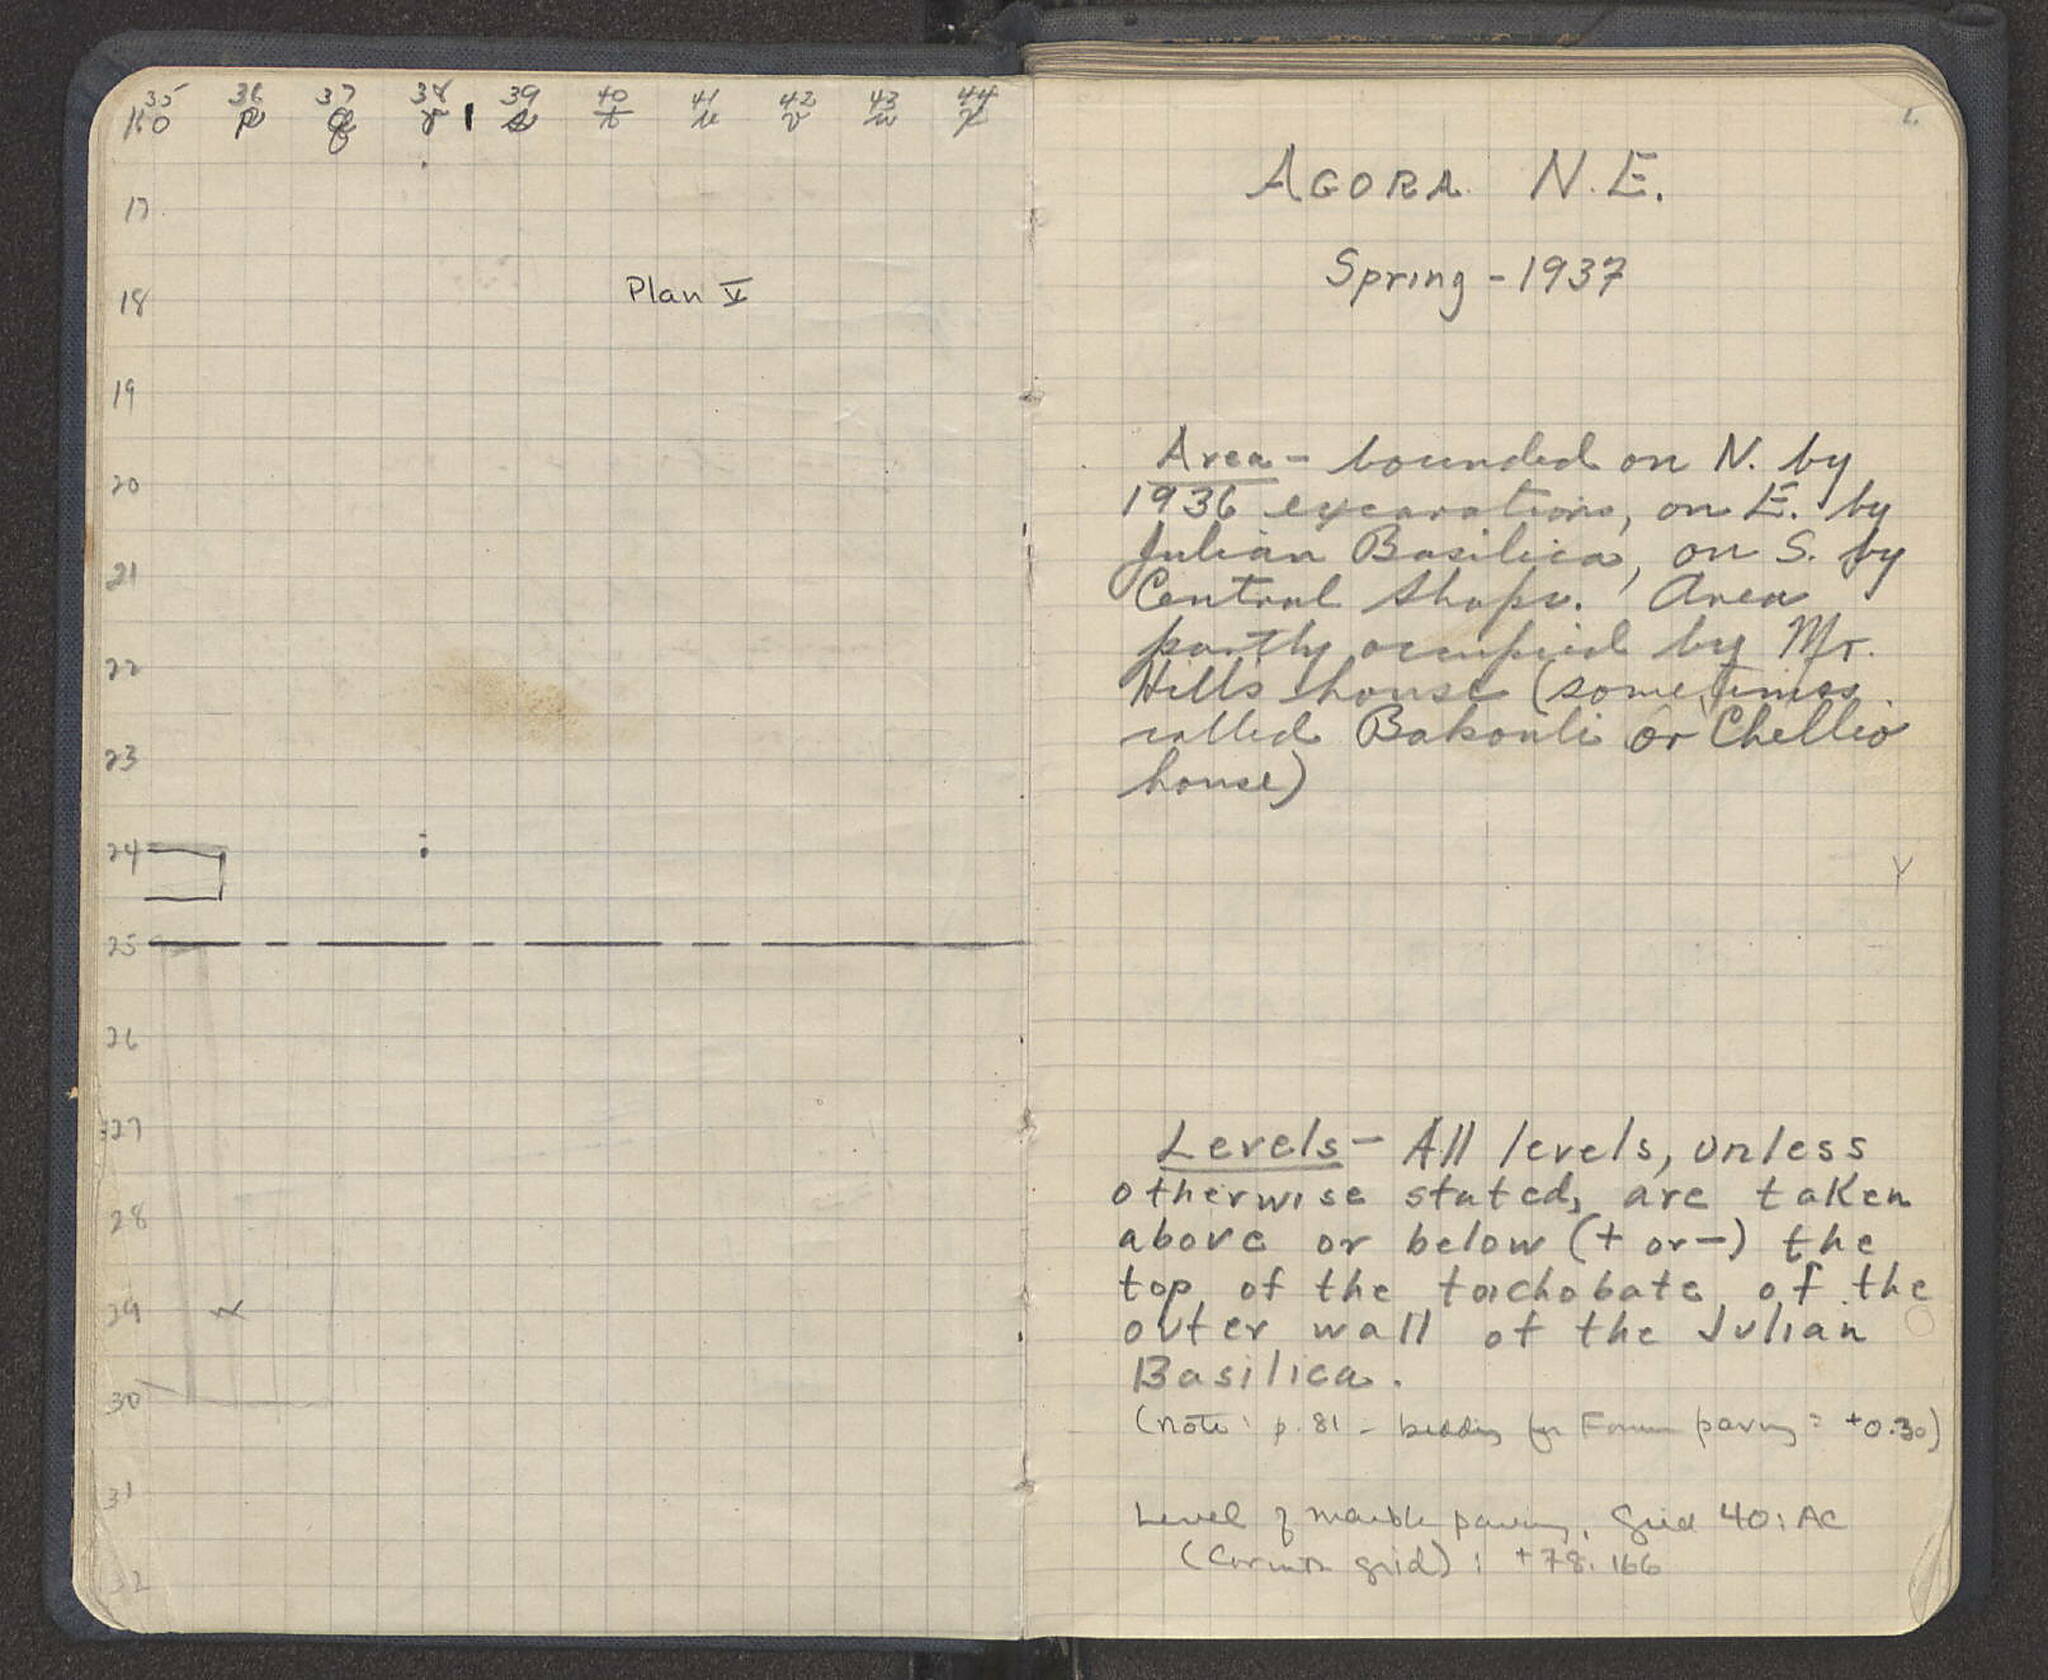 35 36 37 38 39 40 41 42 43 44
K o p q r s t u v w x
17
18
Plan V
19
20
21
22
23
24
25
26
27
28
29
30
31
32
1.
AGORA N.E.
Spring - 1937
Area - bounded on N. by
1936 excavations, on E. by
Julian Basilica, on S. by
Central Shops. Area
partly occupied by Mr.
Hills house (sometimes
called Bakouli or Chellio
house)
Levels - All levels, unless
otherwise stated, are taken
above or below (+ or -) the
top of the toichobate of the
outer wall of the Julian
Basilica.
(note: p. 81 - bedding for Forum paving = +0.30)
Level of marble paving, Grid 40:AC
(Corinth grid): +78.166